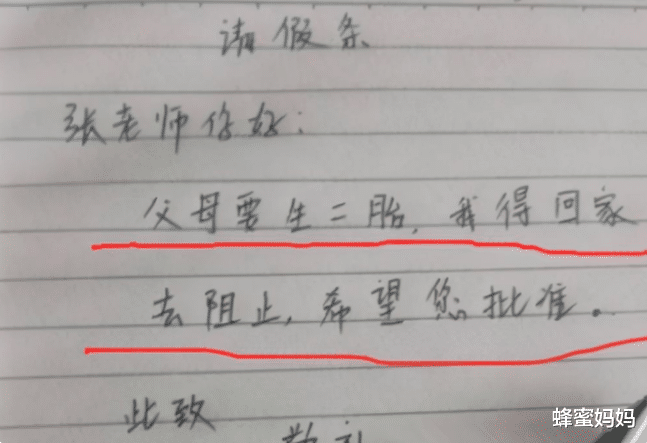 请假条
张老师你好:
父母要生二胎,我得回家
去阻止,希望您批准。
此致
敬礼
蜂蜜妈妈